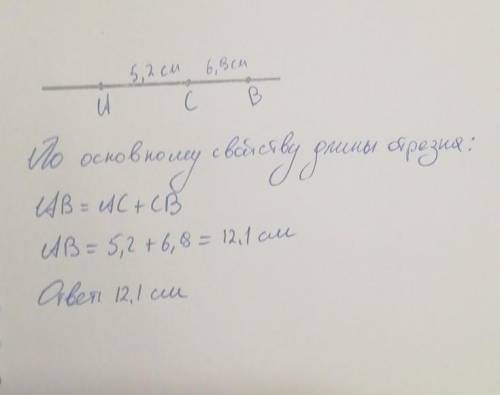 5,2 см 6,9 см
A C B
По основному свойству длины отрезка:
AB = AC + CB
AB = 5,2 + 6,8 = 12,1 см
Ответ: 12,1 см